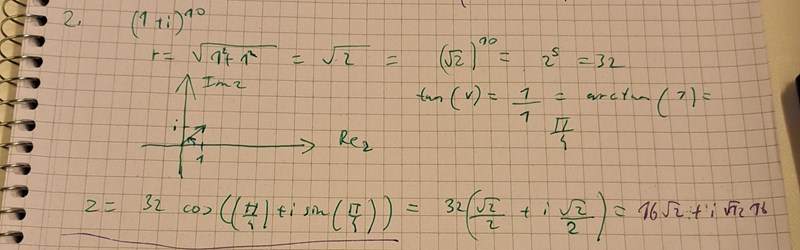 2. (1+i)^10
r = √(1²+1²) = √2 = (√2)^10 = 2^5 = 32
Im z
tan(v) = 1/1 = arctan(1) =
π/4
i
1
Re z
z = 32 cos((π/4) + i sin(π/4)) = 32(√2/2 + i √2/2) = 16√2 + i √2 16